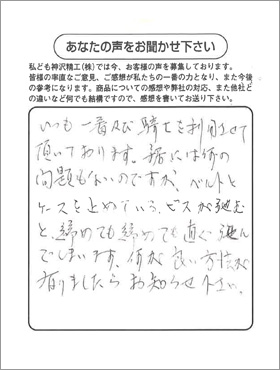 あなたの声をお聞かせ下さい
私ども神沢精工(株)では今、お客様の声を募集しております。
皆様の率直なご意見、ご感想が私たちの一番の力となり、また今後
の参考になります。商品についての感想や弊社の対応、また他社と
の違いなど何でも結構ですので、感想を書いてお送り下さい。
いつも一番及び騎士を利用させて
頂いております。鋸には何の
問題もないのですが、ベルトと
ケースを止めている、ビスが弛む
と、締めても締めても直ぐ弛ん
でしまいます。何か良い方法が
有りましたらお知らせ下さい。